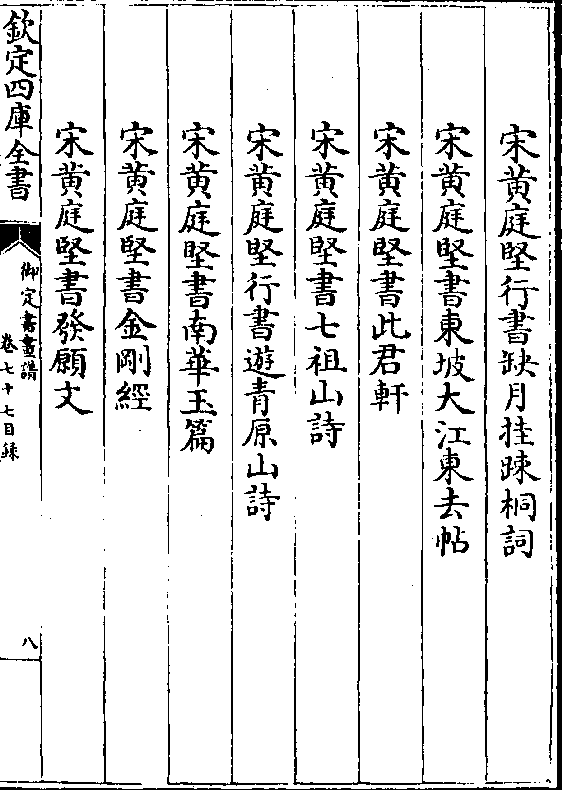 宋黄庭堅行書缺月挂踈桐詞
宋黄庭堅書東坡大江東去帖
宋黄庭堅書此君軒
宋黄庭堅書七祖山詩
宋黄庭堅行書遊青原山詩
宋黄庭堅書南華玉篇
宋黄庭堅書金剛經
宋黄庭堅書發願文
欽定四庫全書
御定書畫譜
卷七十七目録
八